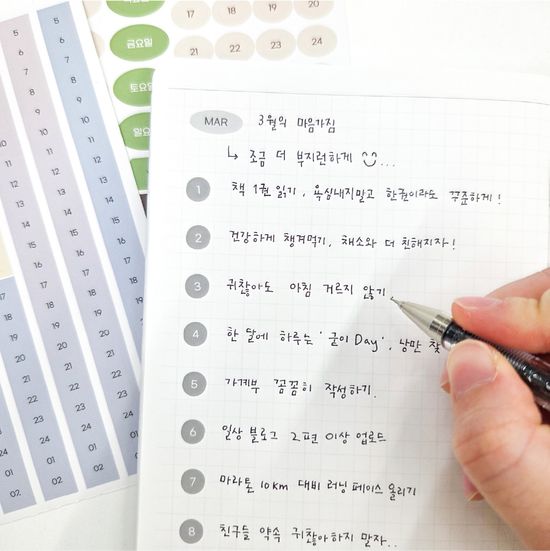 MAR 3월의 마음가짐
↳ 조금 더 부지런하게 ...
1 책 1권 읽기, 욕심내지말고 한권이라도 꾸준하게!
2 건강하게 챙겨먹기, 채소와 더 친해지자!
3 귀찮아도 아침 거르지 않기
4 한 달에 하루는 '굳이 Day', 낭만 찾
5 가계부 꼼꼼히 작성하기.
6 일상 블로그 2편 이상 업로드
7 마라톤 10km 대비 러닝 페이스 올리기
8 친구들 약속 귀찮아하지 말자..
17 18 19 20
금요일 21 22 23 24
토요일
일요일
5 6 7 8 9 10 11 12 13 14 15 16 17 18 19 20 21 22 23 24 01 02
5 6 7 8 9 10 11 12 13 14 15 16 17 18 19 20 21 22 23 24 01 02
17 18 19 20 21 22 23 24 01 02